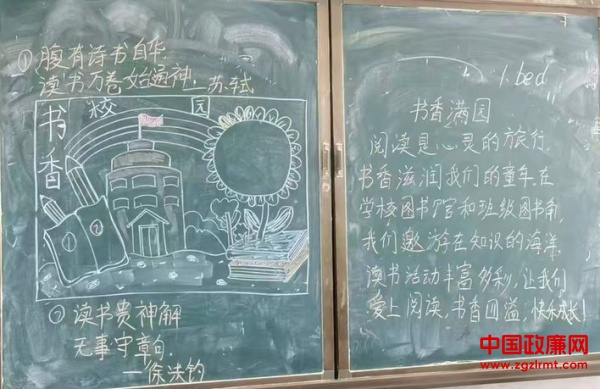 ①腹有诗书自华
读书万卷始通神. 苏轼
书香 校园
①
②读书贵神解
无事守章句.
—徐法钧
1. bed
书香满园
阅读是心灵的旅行,
书香滋润我们的童年在
学校图书室和班级图书角,
我们遨游在知识的海洋
读书活动丰富多彩,让我们
爱上阅读,书香四溢,快乐成长!
中国政廉网
www.zgzlrmt.com